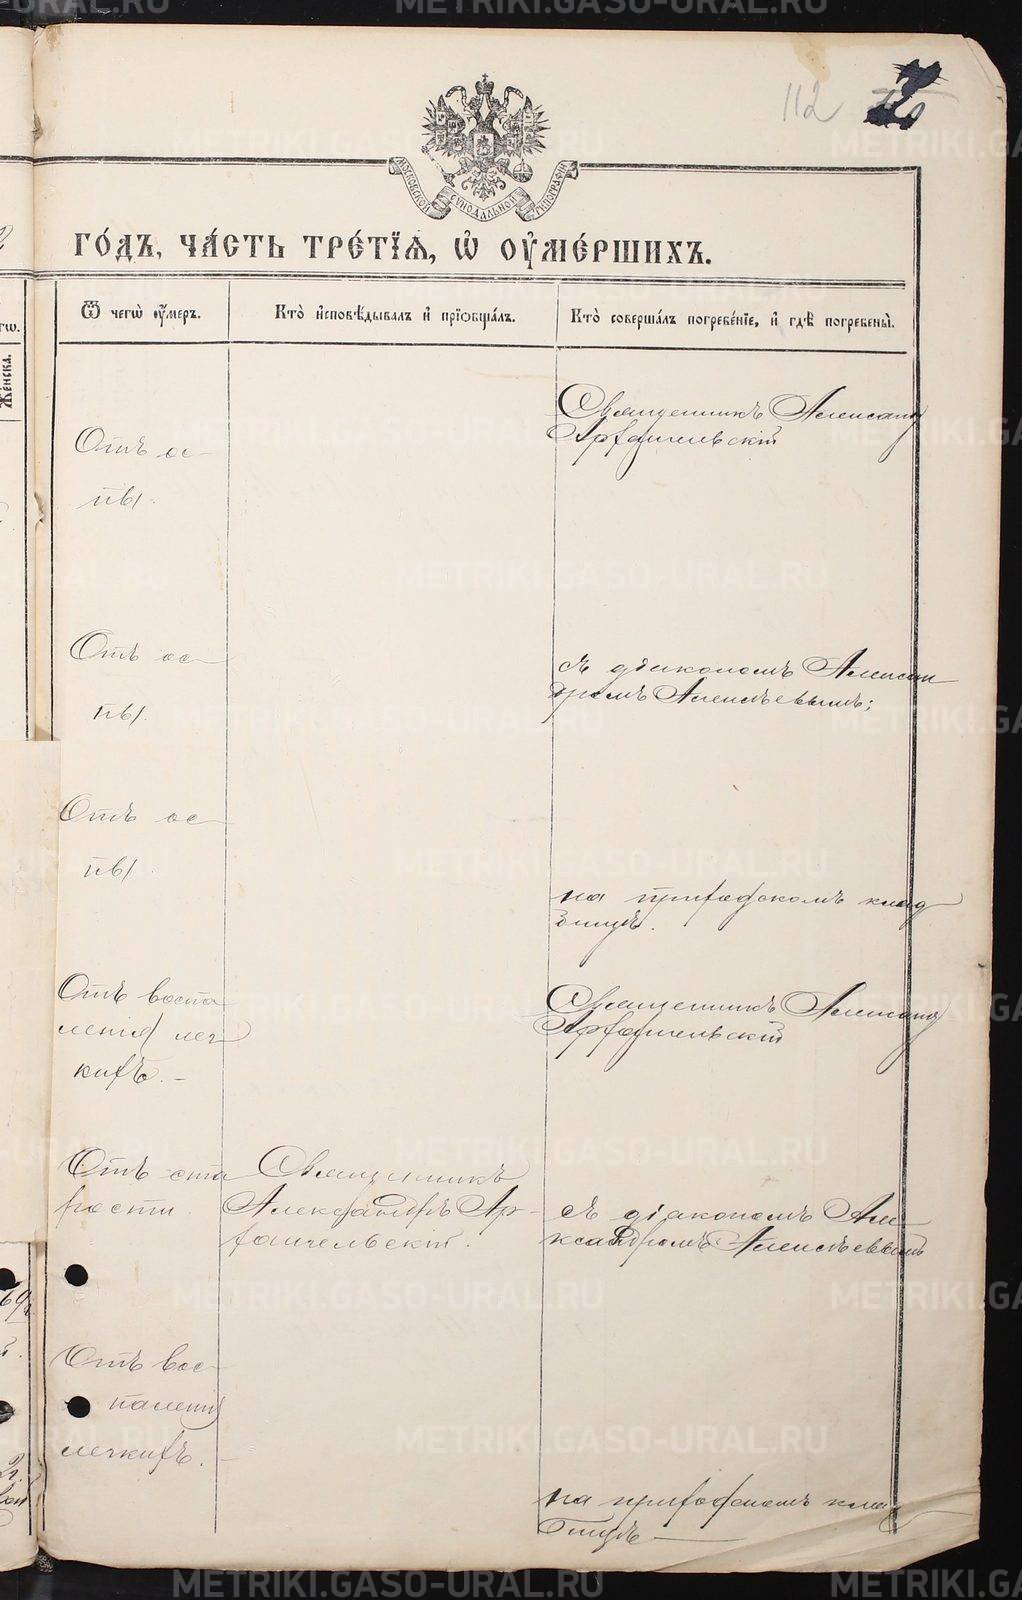 112
МОСКОВСКОЙ СѴНОДАЛЬНОЙ ТИПОГРАФІИ
ГО́ДЪ, ЧА́СТЬ ТРЕ́ТІЯ, Ѡ҆ ОУ҆МЕ́РШИХЪ.
Ѿ чегѡ̀ оу҆́меръ.
Кто̀ и҆сповѣ́дывалъ и҆ прїѡбща́лъ.
Кто̀ соверша́лъ погребе́нїе, и҆ гдѣ̀ погребены̀.
Же́нска.
Священникъ Александ
Архангельскій
Отъ ос-
пы.
Отъ ос-
пы.
съ діакономъ Алексан
дромъ Алексѣевымъ;
Отъ ос-
пы.
на приходскомъ клад
бищѣ.
Отъ воспа
ленія лег
кихъ. –
Священникъ Александ
Архангельскій
Отъ ста
рости.
Священникъ
Александръ Ар-
хангельскій.
съ діакономъ Але-
ксандромъ Алексѣевымъ
Отъ вос-
паленія
легкихъ. –
на приходскомъ клад
бищѣ
METRIKI.GASO-URAL.RU